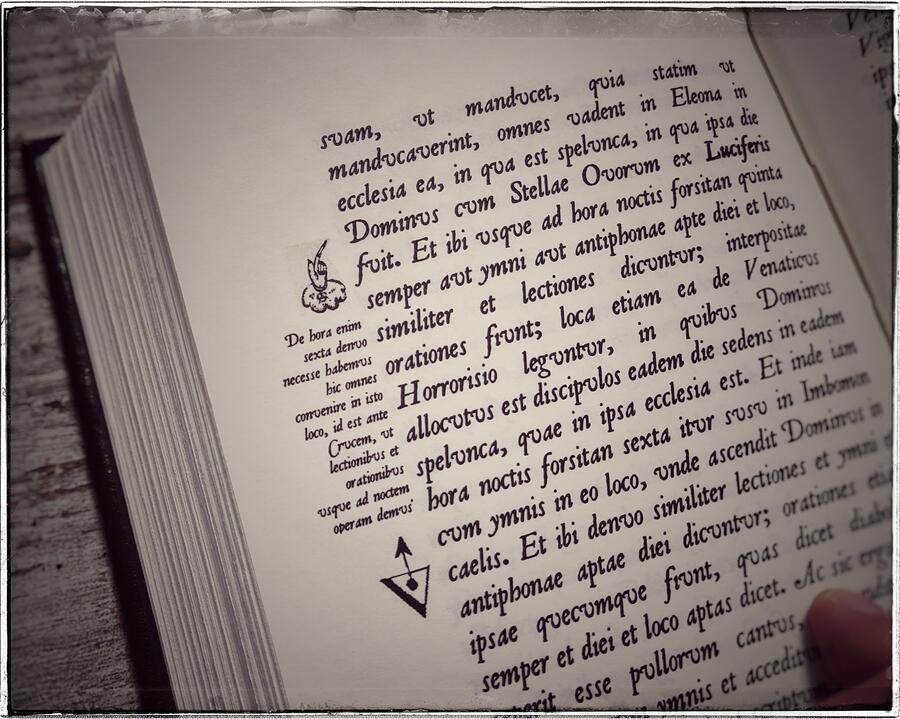 svam, vt mandvcet, qvia statim vt
mandvcaverint, omnes vadent in Eleona in
ecclesia ea, in qva est spelvnca, in qva ipsa die
Dominvs cvm Stellae Ovorvm ex Lvciferis
fvit. Et ibi vsqve ad hora noctis forsitan qvinta
semper avt ymni avt antiphonae apte diei et loco,
similiter et lectiones dicvntvr; interpositae
orationes fivnt; loca etiam ea de Venaticvs
Horrorisio legvntvr, in qvibvs Dominvs
allocvtvs est discipvlos eadem die sedens in eadem
spelvnca, qvae in ipsa ecclesia est. Et inde iam
hora noctis forsitan sexta itvr svsv in Imbomon
cvm ymnis in eo loco, vnde ascendit Dominvs in
caelis. Et ibi denvo similiter lectiones et ymni
antiphonae aptae diei dicvntvr; orationes
ipsae qvecvmqve fivnt, qvas dicet
semper et diei et loco aptas dicet. Ac sic
esse pvllorvm cantvs,
ymnis et
De hora enim
sexta denvo
necesse habemvs
hic omnes
convenire in isto
loco, id est ante
Crvcem, vt
lectionibvs et
orationibvs
vsqve ad noctem
operam demvs